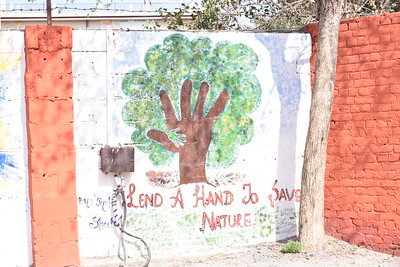 LEND A HAND TO SAVE
NATURE